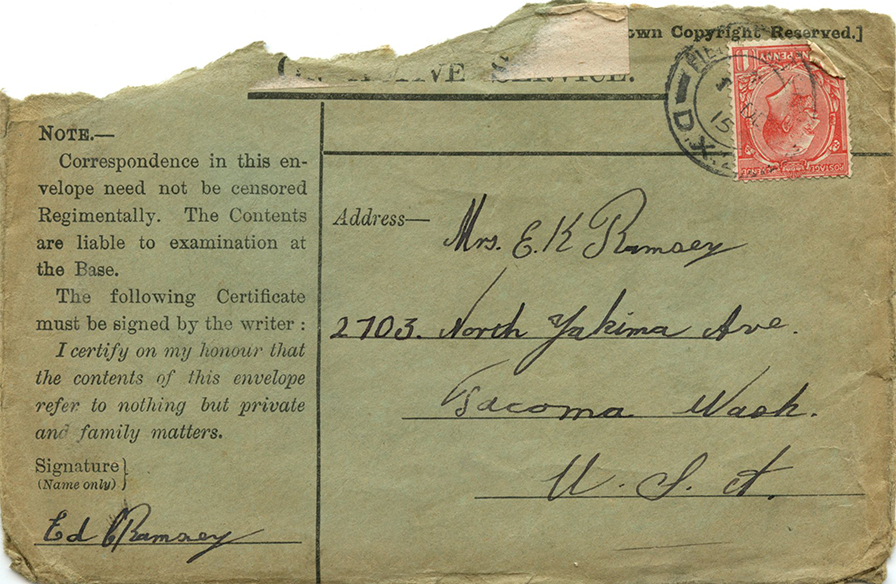 own Copyright Reserved.]
SERVICE.
NOTE.—
Correspondence in this en-
velope need not be censored
Regimentally. The Contents
are liable to examination at
the Base.
The following Certificate
must be signed by the writer :
I certify on my honour that
the contents of this envelope
refer to nothing but private
and family matters.
Signature
(Name only)
Ed Ramsey
Address—
Mrs. E. K Ramsey
2703. North Yakima Ave.
Tacoma Wash.
U. S. A.
D.X.
15
POSTAGE
ONE PENNY